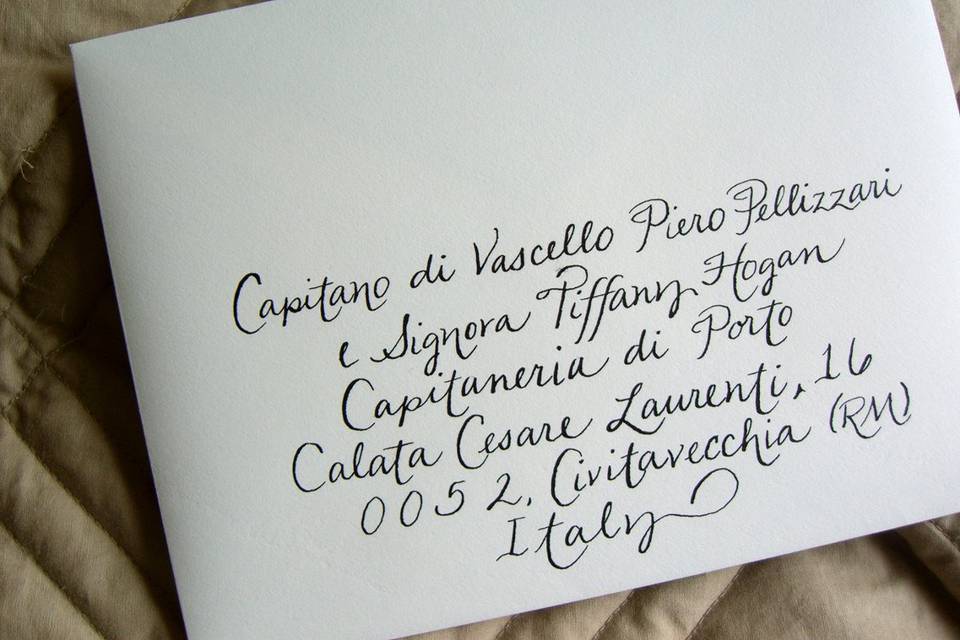 Capitano di Vascello Piero Pellizzari
e Signora Tiffany Hogan
Capitaneria di Porto
Calata Cesare Laurenti, 16
0052, Civitavecchia (RM)
Italy